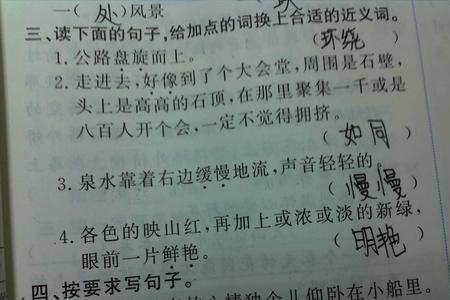 一(处)风景
三、读下面的句子,给加点的词换上合适的近义词。
1. 公路盘旋而上。 (环绕)
2. 走进去,好像到了个大会堂,周围是石壁,
头上是高高的石顶,在那里聚集一千或是
八百人开个会,一定不觉得拥挤。
(如同)
3. 泉水靠着右边缓慢地流,声音轻轻的。
(慢慢)
4. 各色的映山红,再加上或浓或淡的新绿,
眼前一片鲜艳。 (明艳)
四、按要求写句子。
心情独个儿仰卧在小船里。